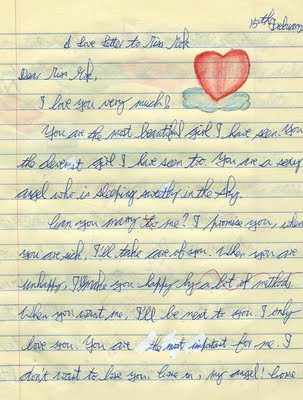 15th February
A love letter to Miss Mok
Dear Miss Mok,
I love you very much!
You are the most beautiful girl I have seen. You
the cleverest girl I have seen too. You are a sexy
angel who is sleeping sweetly in the sky.
Can you marry to me? I promise you, when
you are sick, I'll take care of you. When you are
unhappy, I'll make you happy by a lot of methods.
When you want me, I'll be next to you. I only
love you. You are the most important for me. I
don't want to lose you. Come on, my angel! Come